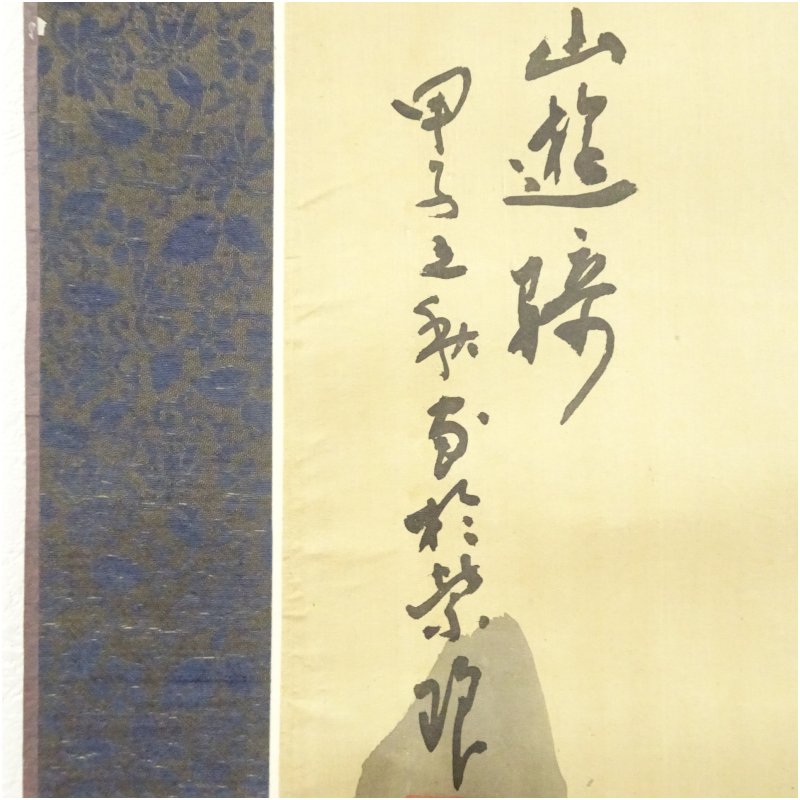 山遊騎
甲子之秋写於紫